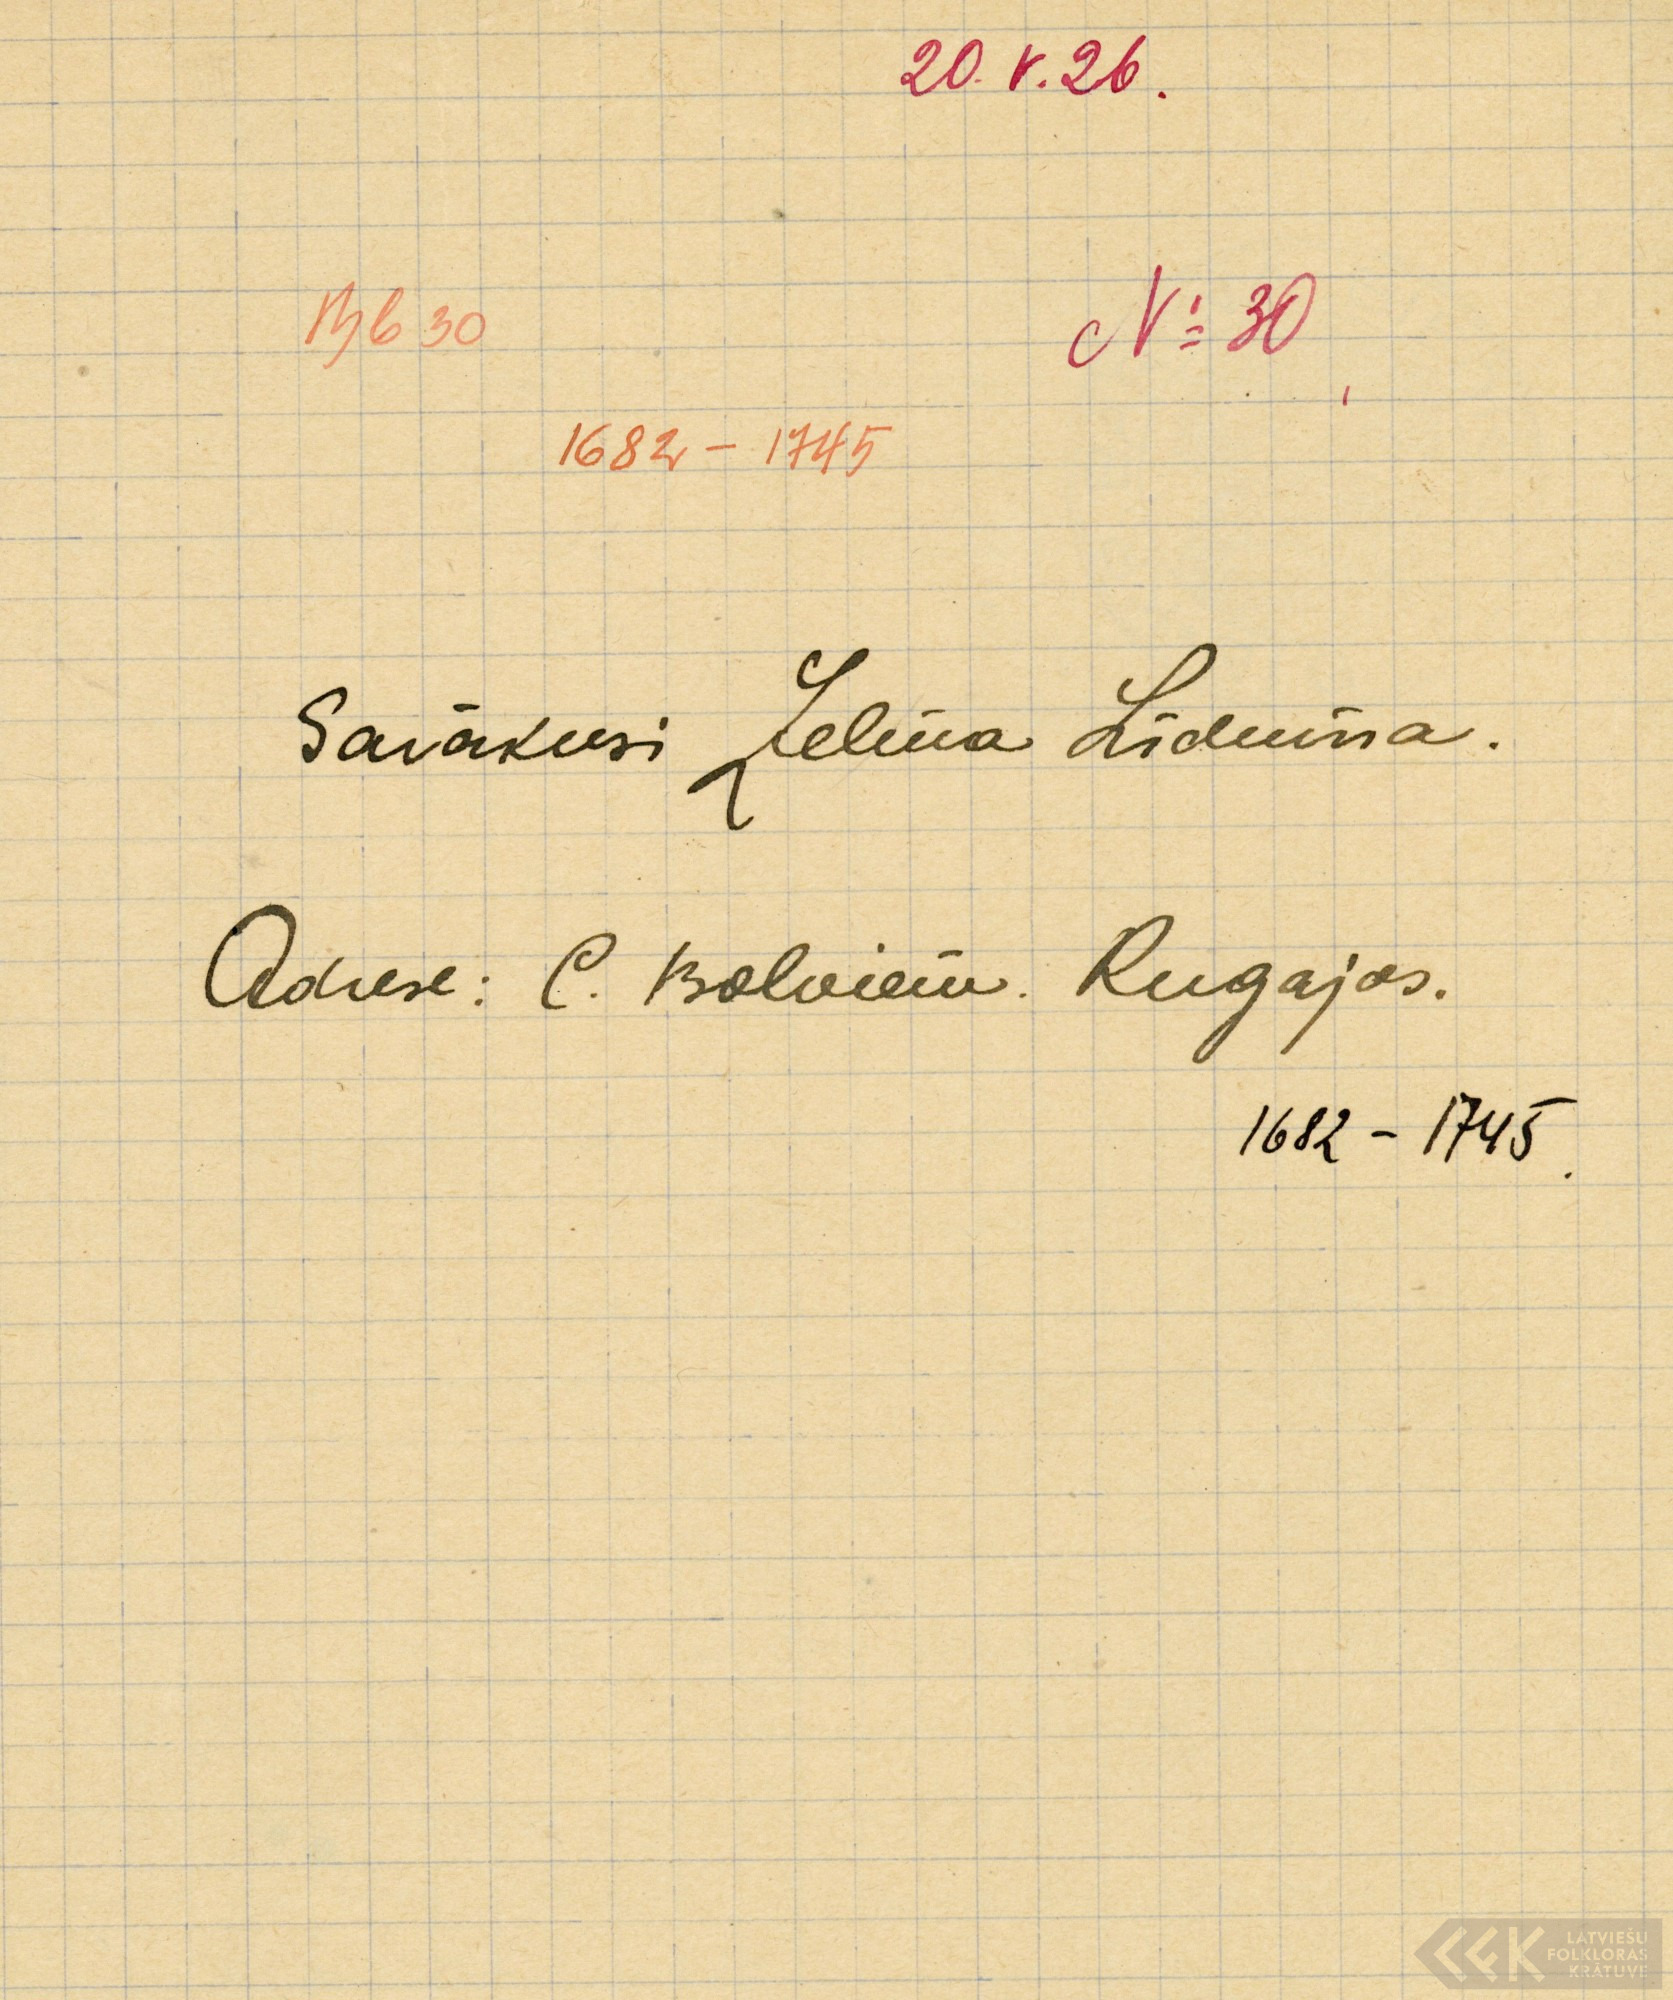 20. V. 26.
Bb 30
№ 30
1682 – 1745
Savākusi Zelma Līduma.
Adrese: C. Bolviem. Rugajos.
1682 – 1745.
LATVIEŠU
FOLKLORAS
KRĀTUVE